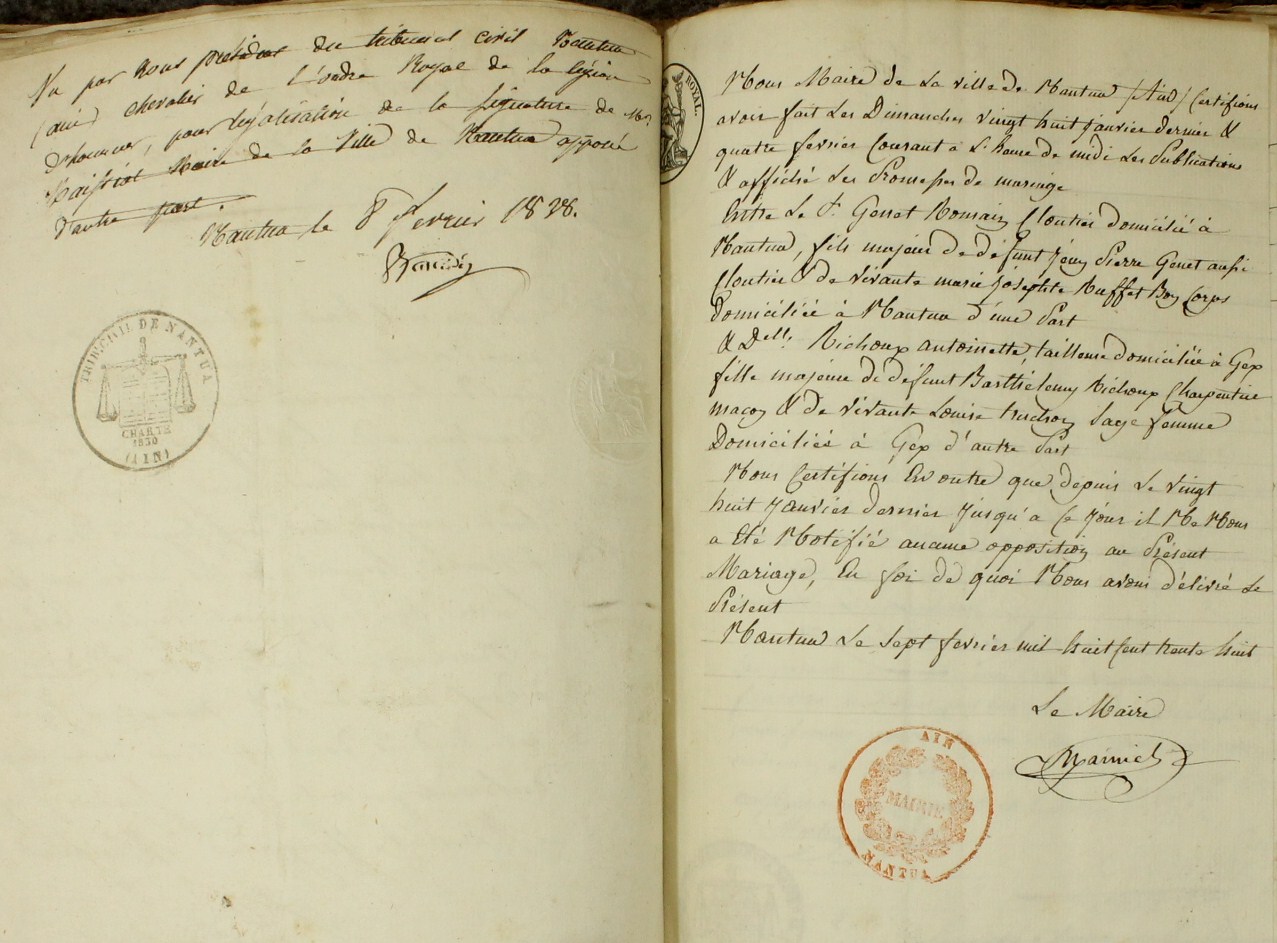 Vu par nous président du tribunal civil Nantua
(ain) chevalier de l'ordre Royal de la légion
d'honneur, pour légalisation de la signature de Mr.
Maire de la Ville de Nantua apposé
d'autre part.
Nantua le 8 fevrier 1838.
TRIB. CIVIL DE NANTUA
CHARTE
1830
(AIN)
ROYAL.
Nous Maire de La Ville de Nantua (Ain) Certifions
avoir fait Les Dimanches vingt huit janvier dernier &
quatre fevrier Courant a L'heure de midi Les Publications
& affiché Les Promesses de mariage
Entre Le Sr. Genet Romain Cloutier domicilié à
Nantua, fils majeur de défunt Jean Pierre Genet aussi
Cloutier & de vivante marie Josephte Buffet Bon Corps
Domiciliée à Nantua d'une Part
& Delle. Richoux antoinette, tailleuse domiciliée à Gex
fille majeure de défunt Barthélemy Richoux Charpentier
maçon & de vivante Louise truchon Sage femme
Domiciliés à Gex d'autre Part
Nous Certifions En outre que depuis Le vingt
huit Janvier dernier Jusqu'a Ce Jour il Ne Nous
a Eté Notifié aucune opposition au Présent
Mariage, En foi de quoi Nous avons délivré Le
Présent
Nantua Le Sept fevrier mil huit Cent trente huit
Le Maire
AIN
MAIRIE
NANTUA